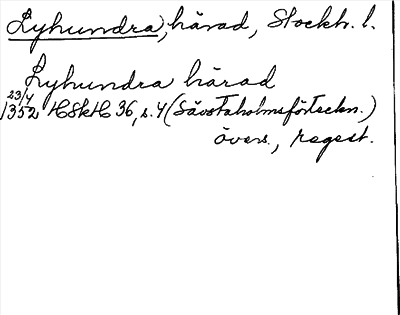 Lyhundra, härad, Stockh. l.
Lyhundra härad
23/4
1352 HSkH 36, s. 4 (Sävstaholmsförteckn.)
övers., regest.